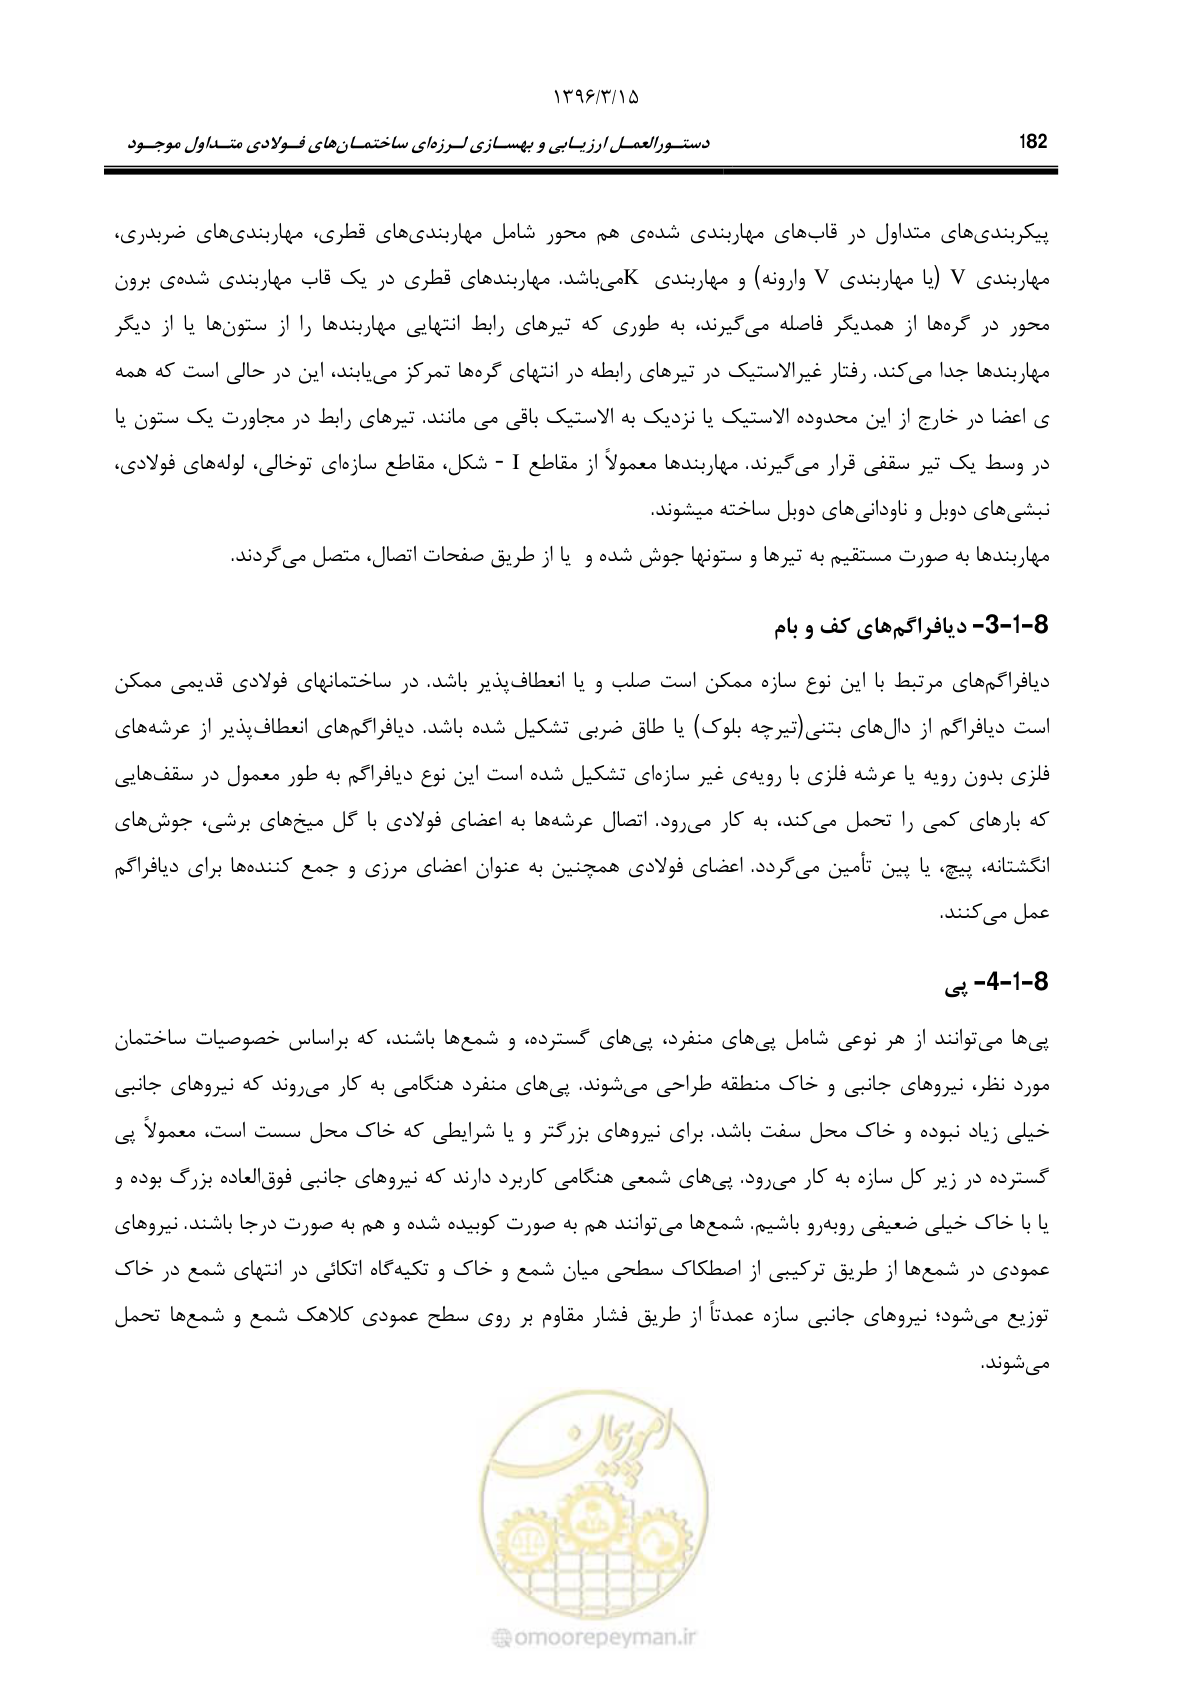 ۱۳۹۶/۳/۱۵
182 دستـورالعمـل ارزیـابی و بهسـازی لـرزه‌ای ساختمـان‌های فـولادی متـداول موجـود
پیکربندی‌های متداول در قاب‌های مهاربندی شده‌ی هم محور شامل مهاربندی‌های قطری، مهاربندی‌های ضربدری،
مهاربندی V (یا مهاربندی V وارونه) و مهاربندی Kمی‌باشد. مهاربندهای قطری در یک قاب مهاربندی شده‌ی برون
محور در گره‌ها از همدیگر فاصله می‌گیرند، به طوری که تیرهای رابط انتهایی مهاربندها را از ستون‌ها یا از دیگر
مهاربندها جدا می‌کند. رفتار غیرالاستیک در تیرهای رابطه در انتهای گره‌ها تمرکز می‌یابند، این در حالی است که همه
ی اعضا در خارج از این محدوده الاستیک یا نزدیک به الاستیک باقی می مانند. تیرهای رابط در مجاورت یک ستون یا
در وسط یک تیر سقفی قرار می‌گیرند. مهاربندها معمولاً از مقاطع I - شکل، مقاطع سازه‌ای توخالی، لوله‌های فولادی،
نبشی‌های دوبل و ناودانی‌های دوبل ساخته میشوند.
مهاربندها به صورت مستقیم به تیرها و ستونها جوش شده و یا از طریق صفحات اتصال، متصل می‌گردند.
8-1-3- دیافراگم‌های کف و بام
دیافراگم‌های مرتبط با این نوع سازه ممکن است صلب و یا انعطاف‌پذیر باشد. در ساختمانهای فولادی قدیمی ممکن
است دیافراگم از دال‌های بتنی(تیرچه بلوک) یا طاق ضربی تشکیل شده باشد. دیافراگم‌های انعطاف‌پذیر از عرشه‌های
فلزی بدون رویه یا عرشه فلزی با رویه‌ی غیر سازه‌ای تشکیل شده است این نوع دیافراگم به طور معمول در سقف‌هایی
که بارهای کمی را تحمل می‌کند، به کار می‌رود. اتصال عرشه‌ها به اعضای فولادی با گل میخ‌های برشی، جوش‌های
انگشتانه، پیچ، یا پین تأمین می‌گردد. اعضای فولادی همچنین به عنوان اعضای مرزی و جمع کننده‌ها برای دیافراگم
عمل می‌کنند.
8-1-4- پی
پی‌ها می‌توانند از هر نوعی شامل پی‌های منفرد، پی‌های گسترده، و شمع‌ها باشند، که براساس خصوصیات ساختمان
مورد نظر، نیروهای جانبی و خاک منطقه طراحی می‌شوند. پی‌های منفرد هنگامی به کار می‌روند که نیروهای جانبی
خیلی زیاد نبوده و خاک محل سفت باشد. برای نیروهای بزرگتر و یا شرایطی که خاک محل سست است، معمولاً پی
گسترده در زیر کل سازه به کار می‌رود. پی‌های شمعی هنگامی کاربرد دارند که نیروهای جانبی فوق‌العاده بزرگ بوده و
یا با خاک خیلی ضعیفی روبه‌رو باشیم. شمع‌ها می‌توانند هم به صورت کوبیده شده و هم به صورت درجا باشند. نیروهای
عمودی در شمع‌ها از طریق ترکیبی از اصطکاک سطحی میان شمع و خاک و تکیه‌گاه اتکائی در انتهای شمع در خاک
توزیع می‌شود؛ نیروهای جانبی سازه عمدتاً از طریق فشار مقاوم بر روی سطح عمودی کلاهک شمع و شمع‌ها تحمل
می‌شوند.
امور پیمان
omoorepeyman.ir